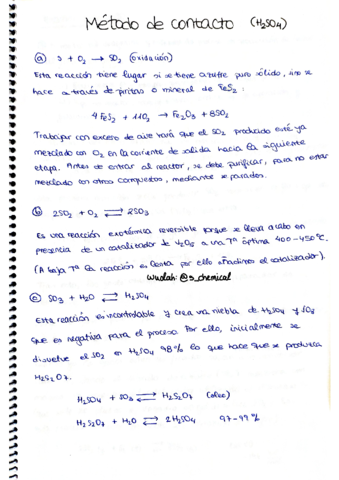 Método de contacto (H₂SO₄)
ⓐ S + O₂ → SO₂ (oxidación)
Esta reacción tiene lugar si se tiene azufre puro sólido, sino se
hace a través de piritas o mineral de FeS₂:
4 FeS₂ + 11O₂ → Fe₂O₃ + 8SO₂
Trabajar con exceso de aire hará que el SO₂ producido esté ya
mezclado con O₂ en la corriente de salida hacia la siguiente
etapa. Antes de entrar al reactor, se debe purificar, para no estar
mezclado con otros compuestos, mediante separados.
ⓑ 2SO₂ + O₂ ⇄ 2SO₃
Es una reacción exotérmica reversible porque se lleva a cabo en
presencia de un catalizador de V₂O₅ a una Tª óptima 400-450ºC.
(A baja Tª la reacción es lenta por ello añadimos el catalizador).
Wuolah: @s_chemical
ⓒ SO₃ + H₂O ⇄ H₂SO₄
Esta reacción es incontrolable y crea una niebla de H₂SO₄ y SO₃
que es negativa para el proceso. Por ello, inicialmente se
disuelve el SO₃ en H₂SO₄ 98% lo que hace que se produzca
H₂S₂O₇.
H₂SO₄ + SO₃ ⇄ H₂S₂O₇ (óleo)
H₂S₂O₇ + H₂O ⇄ 2H₂SO₄ 97-99%